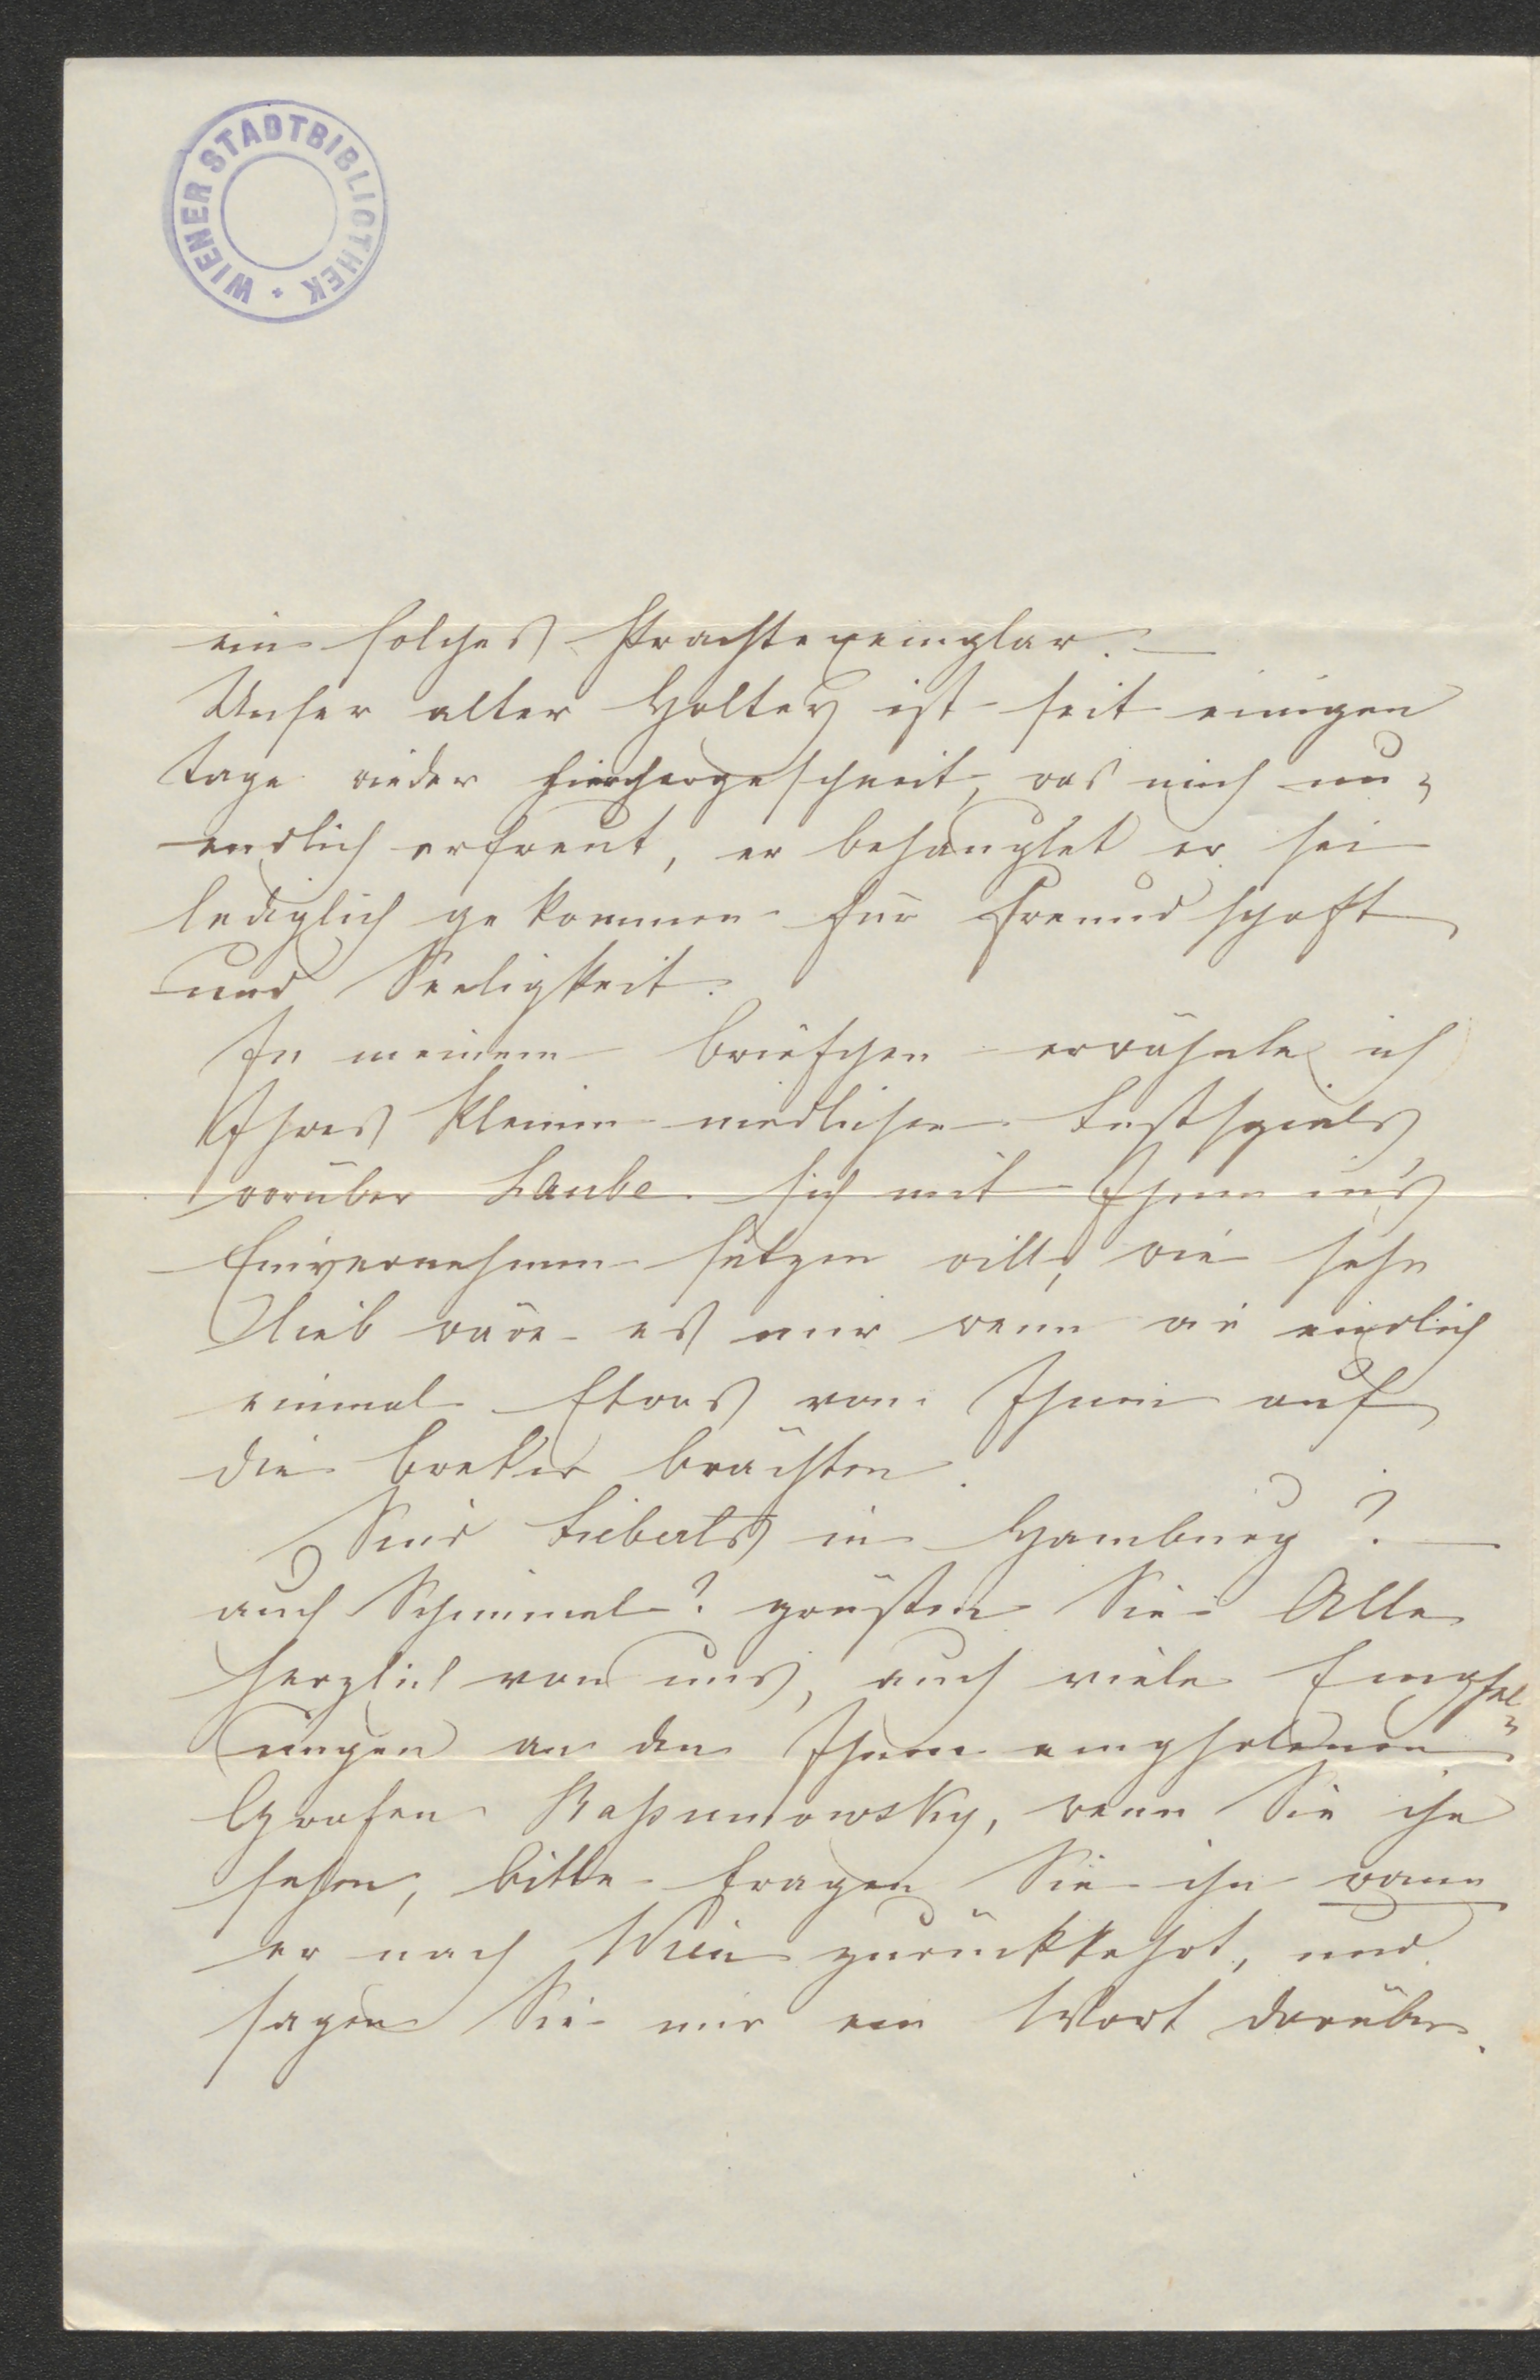 WIENER STADTBIBLIOTHEK *
ein solches Prachtexemplar. —
Unser alter Holtey ist seit einigen
Tage wieder hierhergeschneit, was mich un-
endlich erfreut, er behauptet er sei
lediglich gekommen für Freundschaft
und Seeligkeit.
In meinem Briefchen erwähnte ich
Ihres kleinen niedlichen Lustspiels
worüber Laube sich mit Ihnen in's
Einvernehmen setzen will, wie sehr
lieb wäre es mir wenn wir endlich
einmal Etwas von Ihnen auf
die Bretter brächten.
Sind Lieberts in Hamburg? —
auch Schimmel? grüßten Sie Alle
herzlich von uns, auch viele Empfel-
ungen an den Ihnen empfolenen
Grafen Rasumowsky, wenn Sie ihn
sehen, bitte fragen Sie ihn wann
er nach Wien zurückkehrt, und
sagen Sie mir ein Wort darüber.